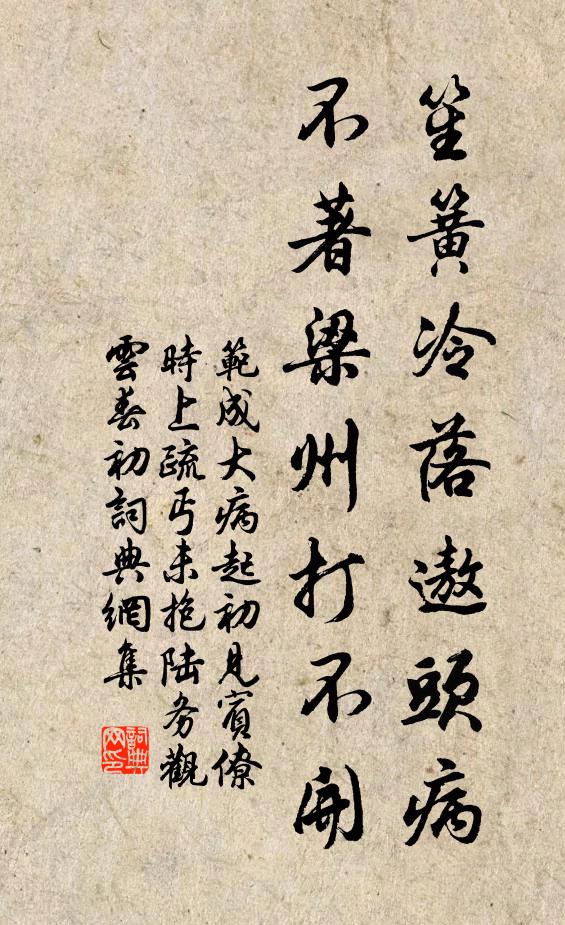 笙簧冷落遨頭病
不著梁州打不開
範成大病起初見賓僚
時上疏丐未抱陸務觀
雲春初詞典網集
詞典
网印